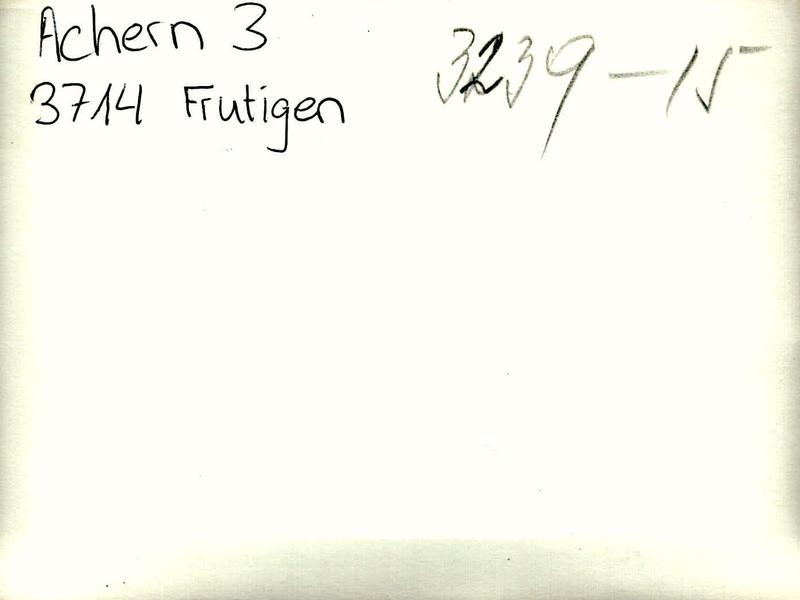 Achern 3
3714 Frutigen
3239-15